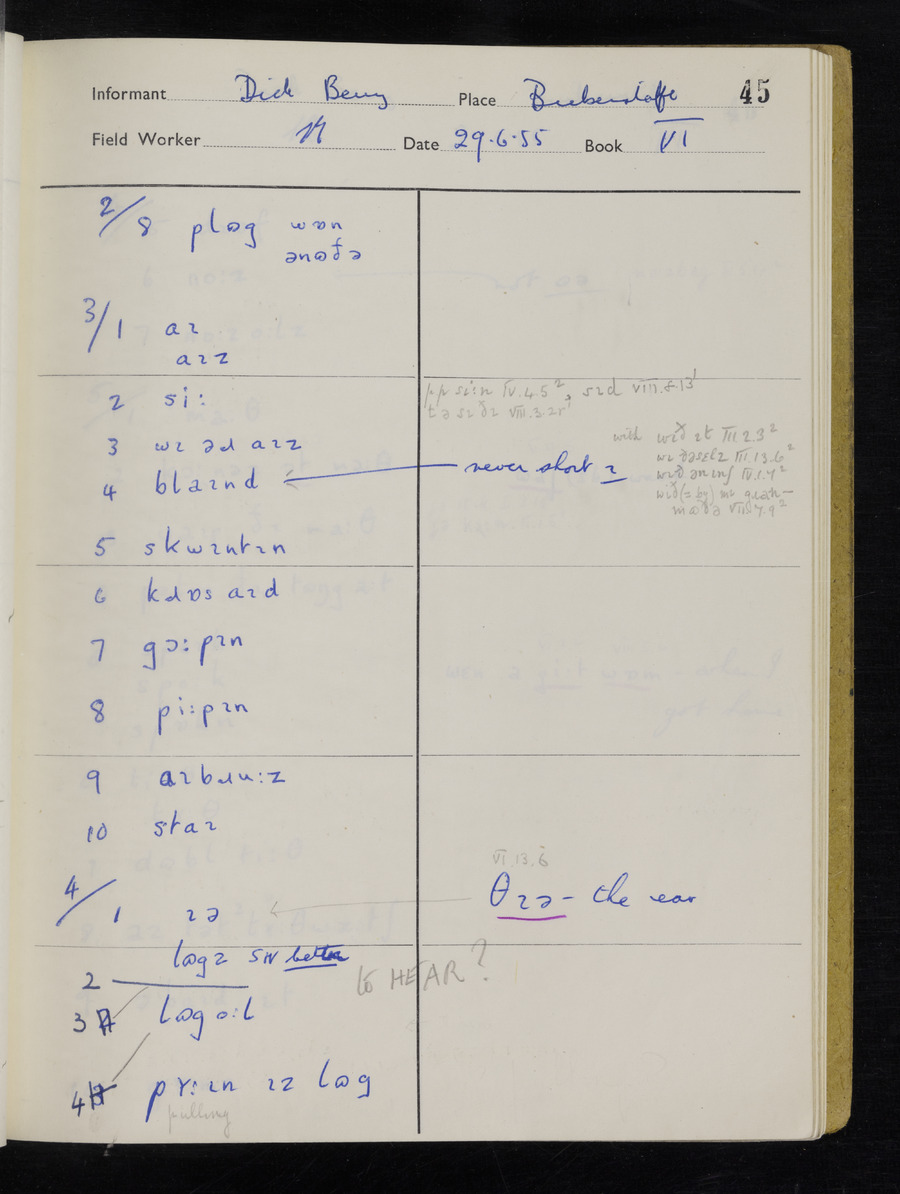 Informant Dick Berry Place Bickerstaffe 45
Field Worker Date 29.6.55 Book VI
2/8 plɷg wɒn
ənɷðə
3/1 aɪ
aɪz
2 si:
pp si:n IV.4.5², sɪd VIII.8.13¹
tə sɪ
3 wɪ əɹ aɪz
with wɪð ɪt III.2.3²
wɪ III.13.6²
4 blaɪnd never short ɪ
wɪð IV.1.4²
wɪð (= by)
VIII.7.9²
5 skwɪntɪn
6 kɹɒs aɪd
7 gɔ:pɪn
8 pi:pɪn
9 aɪbɹu:z
10 staɪ
VI.13.6
4/1 ɪə θɪə – the ear
lɷgz better
2 to HEAR?
3 lɷg o:l
4 pʏ:ɪn ɪz lɷg
pulling